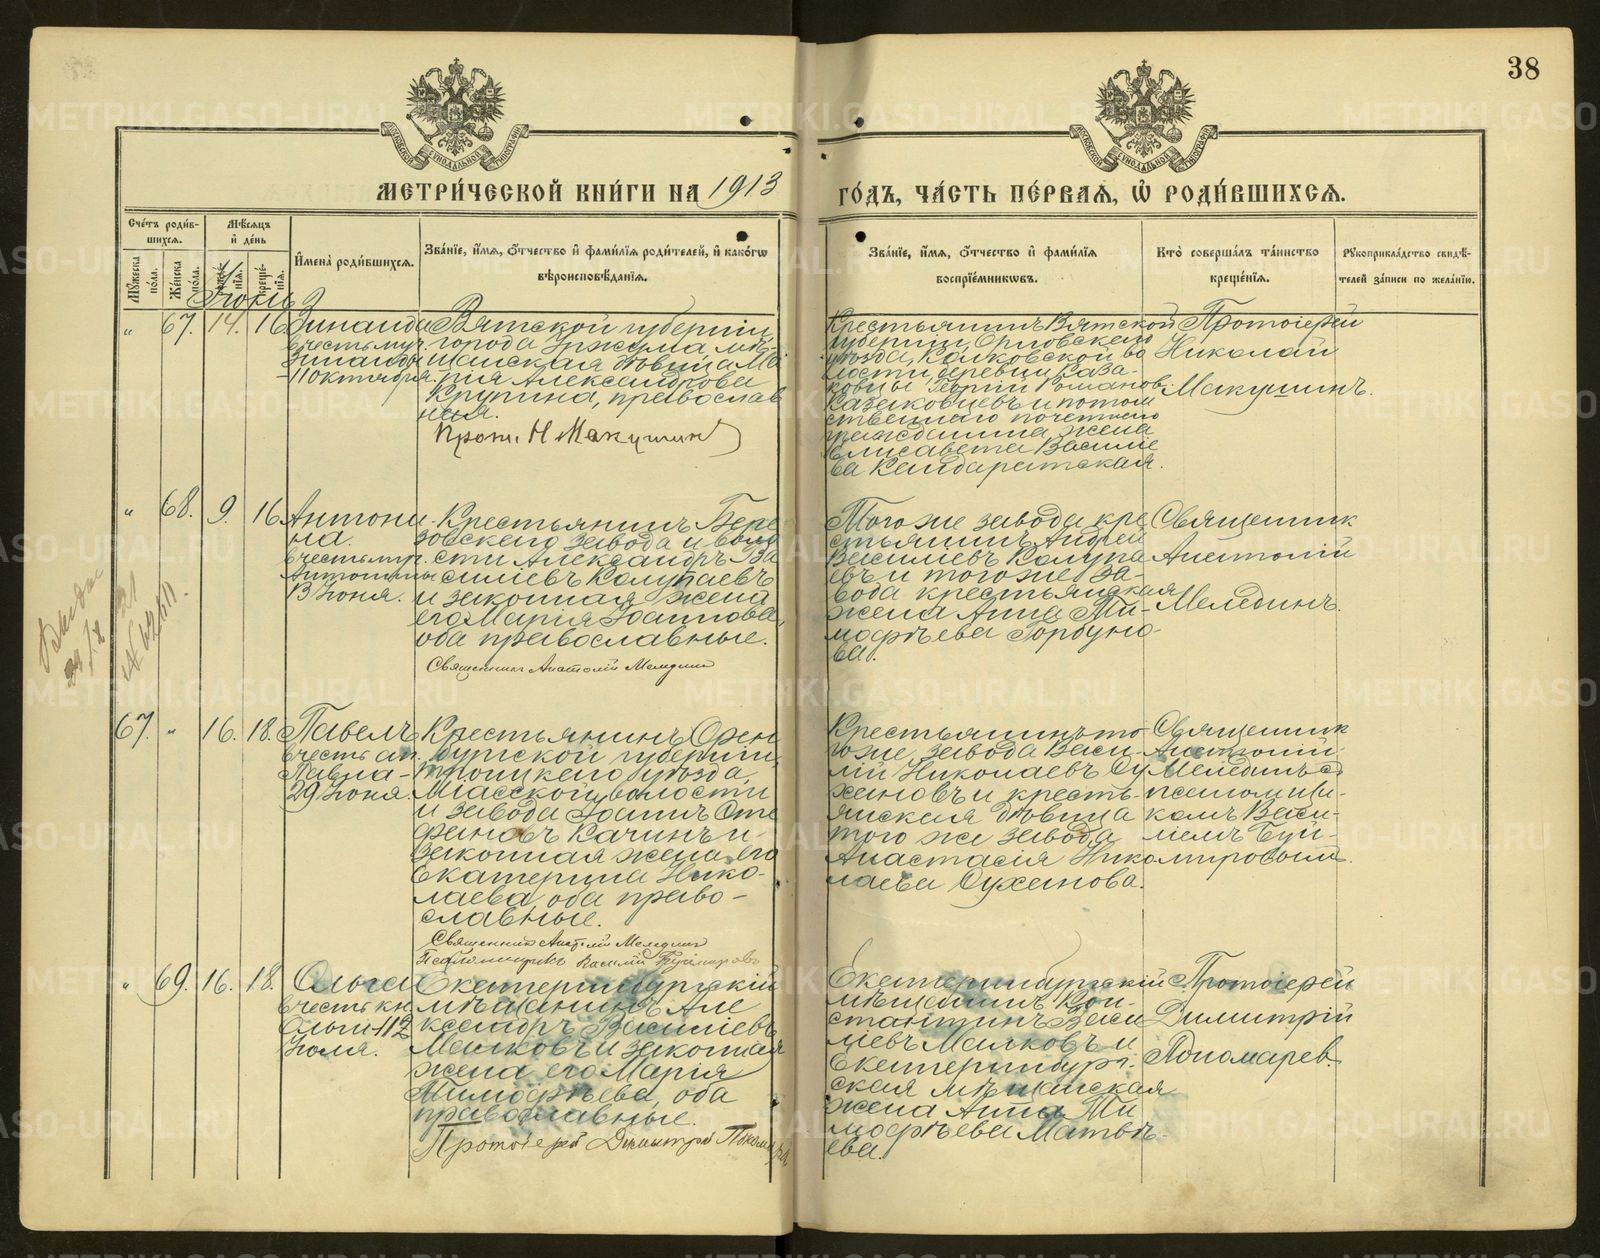 38
МЕТРИ́ЧЕСКОЙ КНИ́ГИ НА 1913
ГО́ДЪ, ЧА́СТЬ ПЕ́РВАЯ, Ѡ҆ РОДИ́ВШИХСЯ.
Сче́тъ роди́в-
шихся.
Мѣ́сяцъ
и҆ де́нь
И҆мена̀ роди́вшихся.
Зва́нїе, и҆́мя, ѻ҆́тчество и҆ фами́лїя роди́телей, и҆ како́гѡ
вѣроисповѣ́данїя.
Зва́нїе, и҆́мя, ѻ҆́тчество и҆ фами́лїя
воспрїе́мникѡвъ.
Кто̀ соверша́лъ та́инство
креще́нїя.
Рꙋкоприкла́дство свидѣ́-
телей за́писи по жела́нїю.
Мꙋ́жеска
по́ла.
Же́нска
по́ла.
креще́-
нїя.
Іюнь
„ 67. 14. 16
Зинаида
в честь муч.
Зинаиды
-11 октября.
Вятской губерніи
города Уржума мѣ-
щанская дѣвица Ма
рія Александрова
Крупина, православ
ная.
Прот. Н Макушин
Крестьянинъ Вятской
губерніи, Орловскаго
уѣзда, Колковской во
лости деревни Каза-
ковцы Георгій Романов
Казаковцевъ и потом
ственнаго почетнаго
гражданина жена
Елисавета Василіе
ва Кандаратская.
Протоіерей
Николай
Макушинъ.
„ 68. 9. 16
Антони
на.
в честь мц.
Антонины
13 Іюня.
Крестьянинъ Бере
зовскаго завода и воло
сти Александръ Ва
силіевъ Колупаевъ
и законная жена
его Марія Іоаннова,
оба православные.
Священник Анатолій Мелединъ
Того же завода кре
стьянинъ Андрей
Василіевъ Колупа
евъ и того же за-
вода крестьянская
жена Анна Ти-
мофѣева Горбуно-
ва.
Священник
Анатолій
Мелединъ.
67. „ 16. 18.
Павелъ
в честь ап.
Павла-
29 Іюня.
Крестьянинъ Орен
бургской губерніи,
Троицкаго уѣзда,
Міасской волости
и завода Іоаннъ Сте
фановъ Качинъ и
законная жена его
Екатерина Нико-
лаева, оба право-
славные.
Священник Анатолій Мелединъ
Псаломщикъ Василій Буймировъ
Крестьянинъ то
го же завода Васи
лій Николаевъ Су
хановъ и кресть-
янская дѣвица
того же завода
Анастасія Нико
лаева Суханова.
Священник
Анатолій
Мелединъ съ
псаломщи-
комъ Васи-
ліемъ Буй-
мировым.
„ 69. 16. 18.
Ольга
в честь кн.
Ольги-11
Іюля.
Екатеринбургскій
мѣщанинъ Але
ксандръ Василіевъ
Малковъ и законная
жена его Марія
Тимофѣева, оба
православные.
Протоіерей Димитрій Пономарев
Екатеринбургскій
мѣщанинъ Кон-
стантинъ Васи
ліевъ Малковъ и
Екатеринбург.
ская мѣщанская
жена Анна Ти
мофѣева Матвѣ-
ева.
Протоіерей
Димитрій
Пономарев.
METRIKI.GASO-URAL.RU